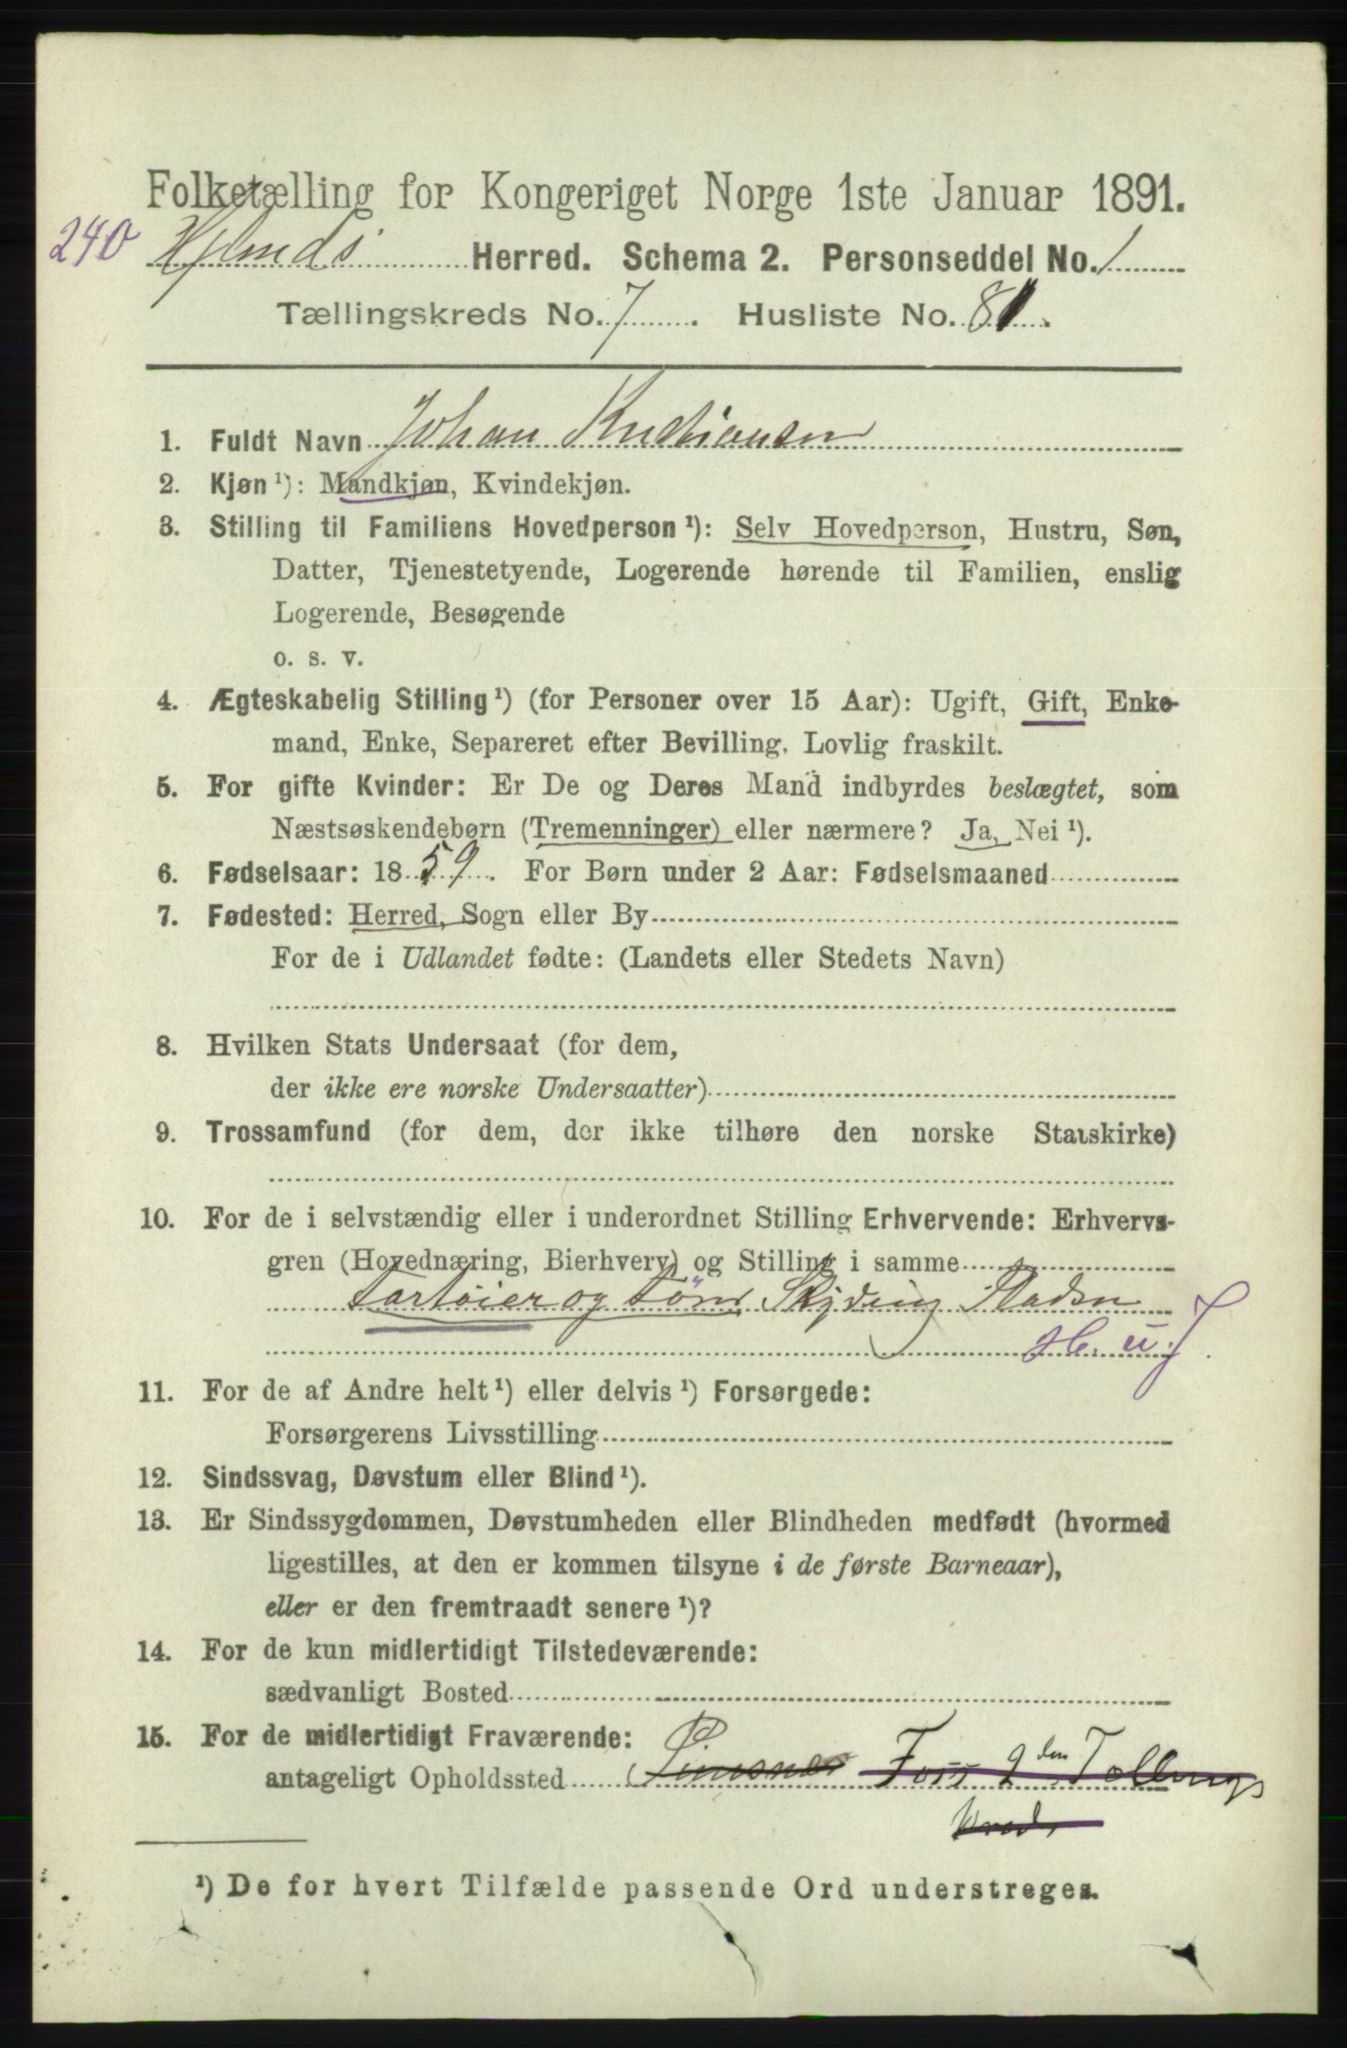 Folketælling for Kongeriget Norge 1ste Januar 1891.
240 Herred. Schema 2. Personseddel No. 1
Tællingskreds No. 7. Husliste No. 81.
1. Fuldt Navn Johan Kristiansen
2. Kjøn ¹): Mandkjøn, Kvindekjøn.
3. Stilling til Familiens Hovedperson ¹): Selv Hovedperson, Hustru, Søn,
Datter, Tjenestetyende, Logerende hørende til Familien, enslig
Logerende, Besøgende
o. s. v.
4. Ægteskabelig Stilling ¹) (for Personer over 15 Aar): Ugift, Gift, Enke-
mand, Enke, Separeret efter Bevilling. Lovlig fraskilt.
5. For gifte Kvinder: Er De og Deres Mand indbyrdes beslægtet, som
Næstsøskendebørn (Tremenninger) eller nærmere? Ja, Nei ¹).
6. Fødselsaar: 1859. For Børn under 2 Aar: Fødselsmaaned
7. Fødested: Herred, Sogn eller By
For de i Udlandet fødte: (Landets eller Stedets Navn)
8. Hvilken Stats Undersaat (for dem,
der ikke ere norske Undersaatter)
9. Trossamfund (for dem, der ikke tilhøre den norske Statskirke)
10. For de i selvstændig eller i underordnet Stilling Erhvervende: Erhvervs-
gren (Hovednæring, Bierhverv) og Stilling i samme
og
H. u J.
11. For de af Andre helt ¹) eller delvis ¹) Forsørgede:
Forsørgerens Livsstilling
12. Sindssvag, Døvstum eller Blind ¹).
13. Er Sindssygdommen, Døvstumheden eller Blindheden medfødt (hvormed
ligestilles, at den er kommen tilsyne i de første Barneaar),
eller er den fremtraadt senere ¹)?
14. For de kun midlertidigt Tilstedeværende:
sædvanligt Bosted
15. For de midlertidigt Fraværende:
antageligt Opholdssted Foss 9den Tællings
Kreds
¹) De for hvert Tilfælde passende Ord understreges.